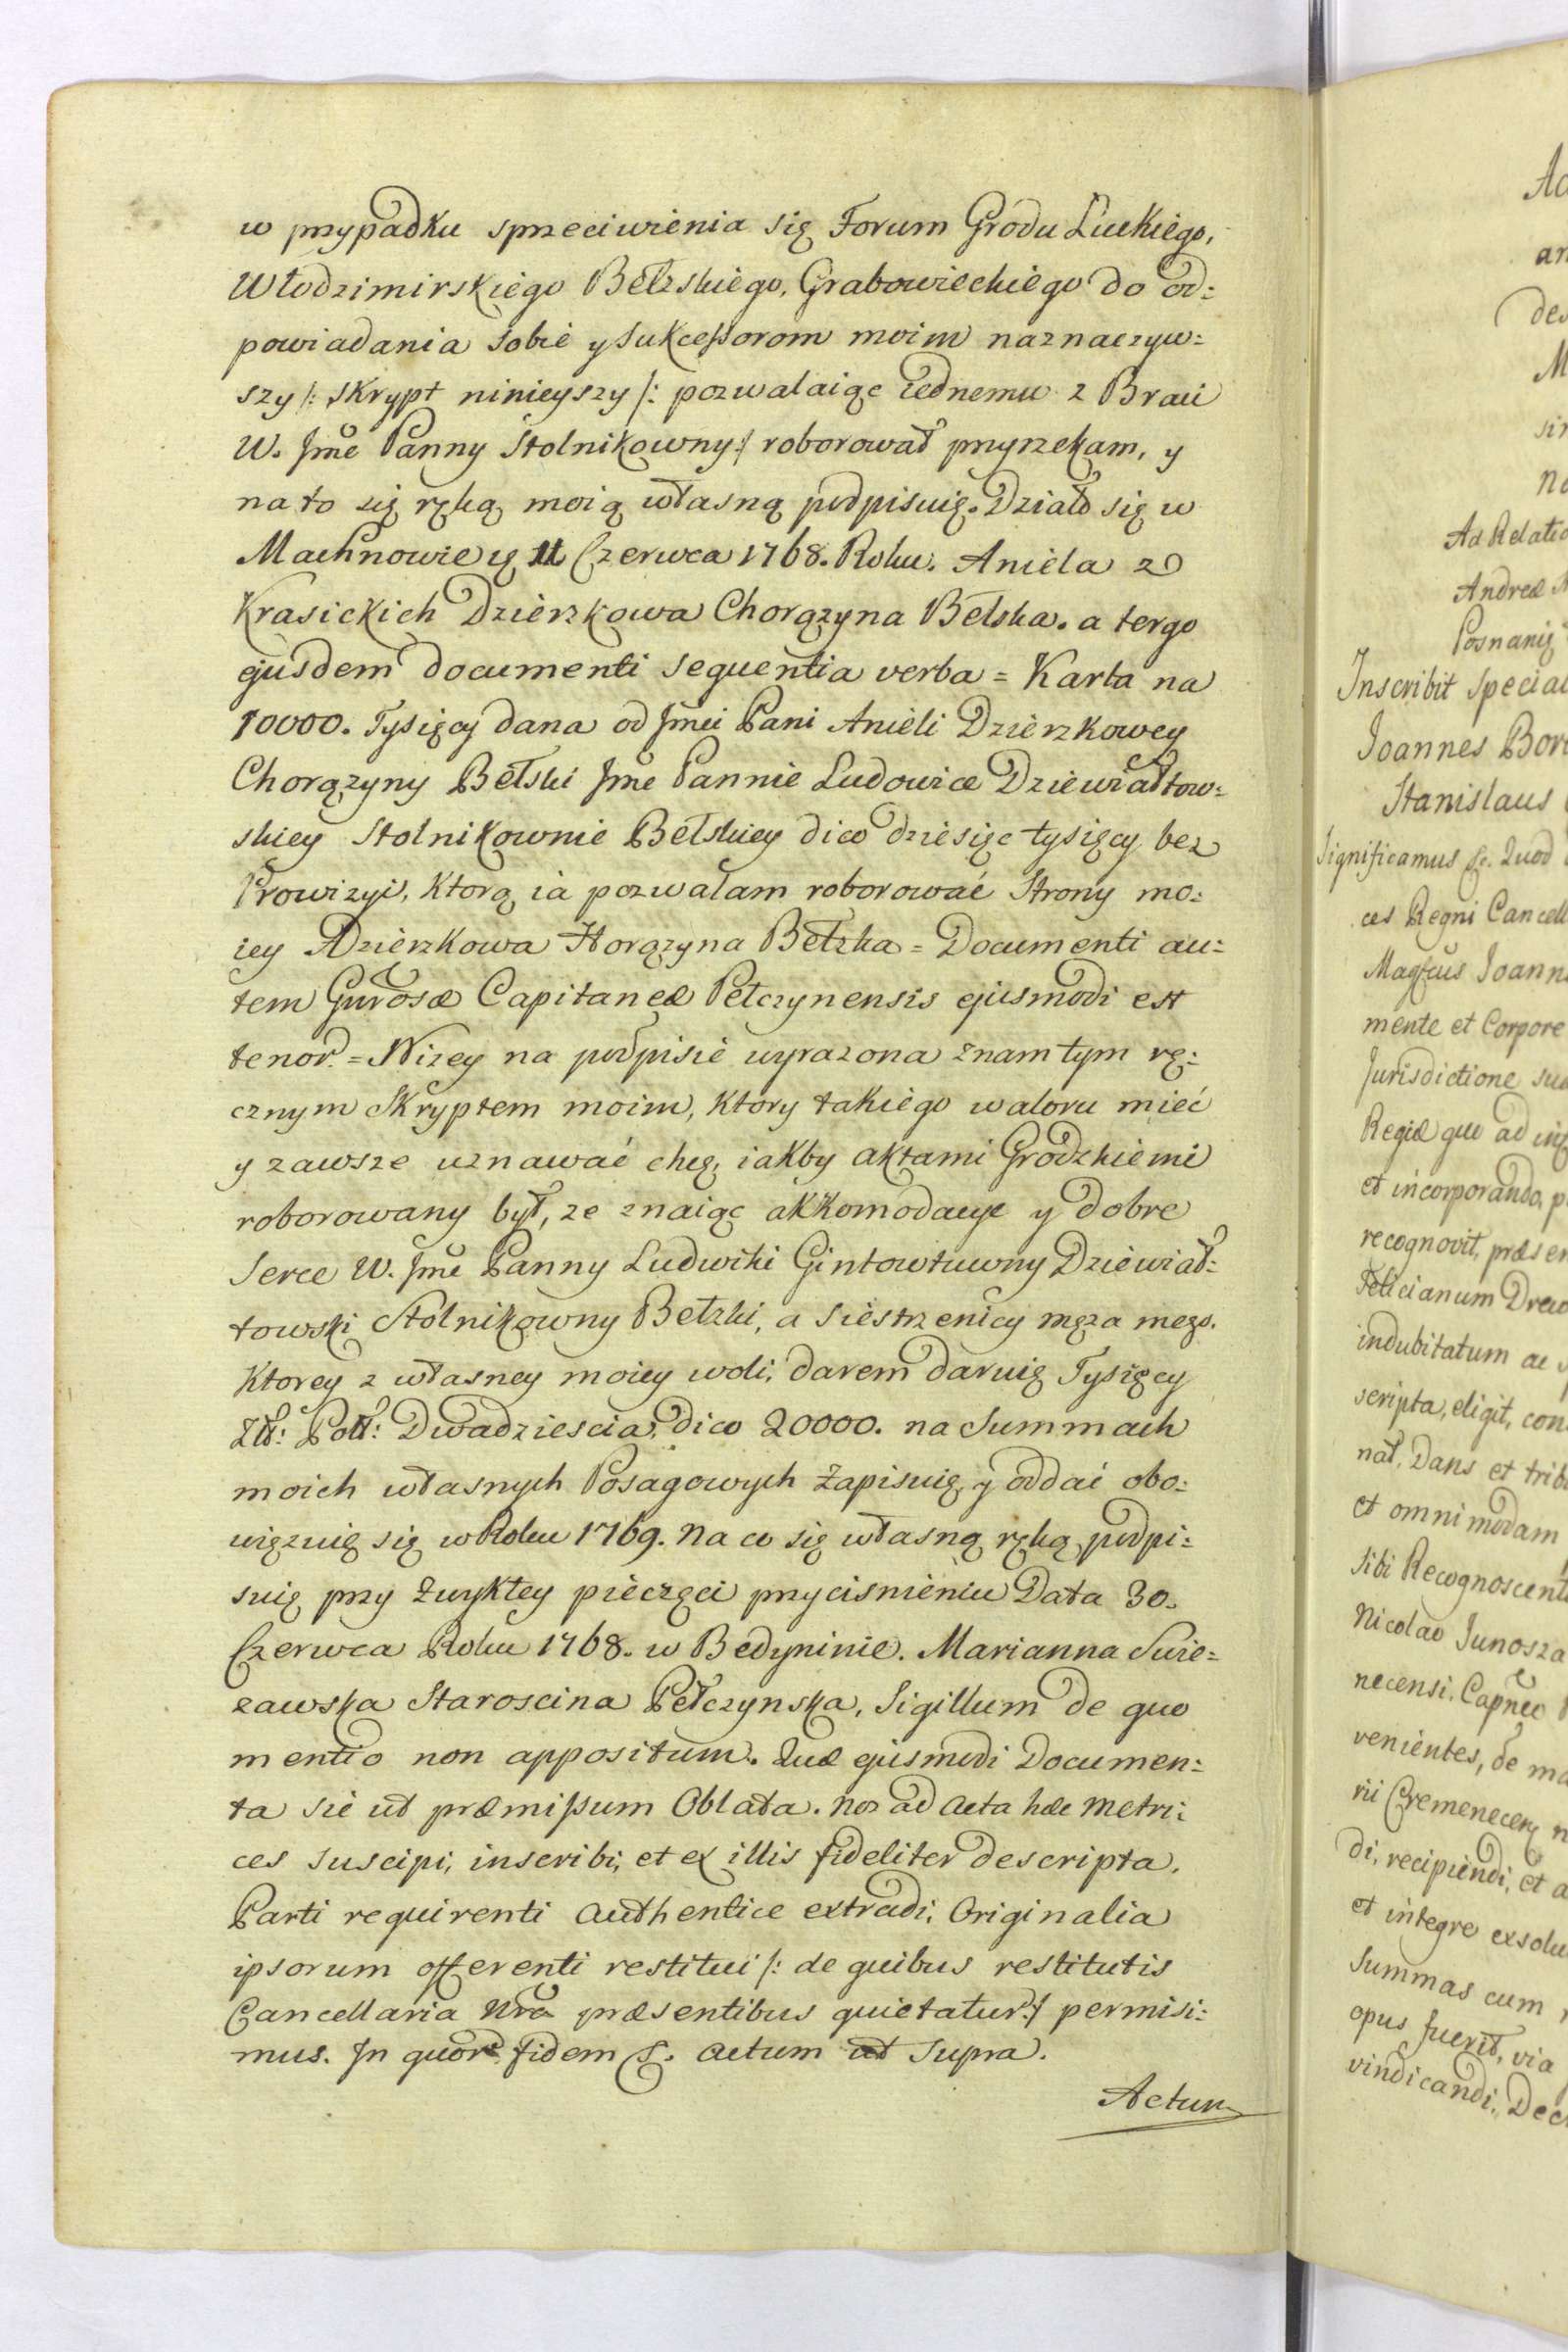 w przypadku sprzeciwienia się Forum Grodu Luckiego,
Włodzimirskiego Bełzskiego, Grabowieckiego do od:
powiadania sobie y sukcessorom moim naznaczyw:
szy /: skrypt ninieyszy /: pozwalaiąc iednemu z Braci
W. Jme Panny Stolnikowny :/ roborować przyrzekam, y
na to się ręką moią własną podpisuię. Działo się w
Machnowie 11 Czerwca 1768. Roku. Aniela z
Krasickich Dzierzkowa Chorązyna Bełska. a tergo
ejusdem documenti sequentia verba = Karta na
10000. Tysięcy dana od Jmci Pani Anieli Dzierzkowey
Chorązyny Bełski Jme Pannie Ludowice Dziewiałtow:
skiey Stolnikownie Bełskiey dico dziesięc tysięcy bez
Prowizyi, Ktorą ia pozwalam roborować Strony mo:
iey Dzierzkowa Horązyna Bełzka = Documenti au:
tem Gñrosæ Capitaneæ Pełczynensis ejusmodi est
tenor. = Nizey na podpisie wyrazona znam tym rę:
cznym Skryptem moim, Ktory takiego waloru mieć
y zawsze uznawać chcę, iakby aktami Grodzkiemi
roborowany był, ze znaiąc akkomodacye y dobre
Serce W. Jme Panny Ludwiki Gintowtuwny Dziewiał:
towski Stolnikowny Bełzki, a Siestrzenicy męza mego.
Ktorey z własney moiey woli, darem daruię Tysięcy
Zł: Pol: Dwadziescia, dico 20000. na Summach
moich własnych Posagowych Zapisuię, y oddać obo:
więzuię się w Roku 1769. Na co się własną ręką podpi:
suię przy Zwykłey pieczęci przycisnieniu Data 30.
Czerwca Roku 1768. w Bedyninie. Marianna Swie=
zawska Staroscina Pełczynska, Sigillum de quo
mentio non appositum. Quæ ejusmodi Documen:
ta sic ut præmissum Oblata. Nos ad Acta hæc Metri:
ces suscipi, inscribi, et ex illis fideliter descripta,
Parti requirenti Authentice extradi, Originalia
ipsorum offerenti restitui /: de quibus restitutis
Cancellaria Nrã præsentibus quietatur :/ permisi:
mus. In quor fidem &. Actum ut Supra.
Actum
Ad Relatio
Andreæ
Posnanię
Inscribit Special
Joannes Bor
Stanislaus
Significamus &. Quod
ces Regni Cancell
Magfcus Joann
mente et Corpore
Jurisdictione su
Regiæ que ad
et incorporando, p
recognovit, præsen
Felicianum Drew
indubitatum ac
scripta, eligit, con
nat, Dans et trib
et omnimodam
sibi Recognoscent
Nicolao Junosza
necensi, Capneo
venientes, de ma
rii Cremenecen
di, recipiendi, et a
et integre exsolu
Summas cum
opus fuerit, via
vindicandi, Dec